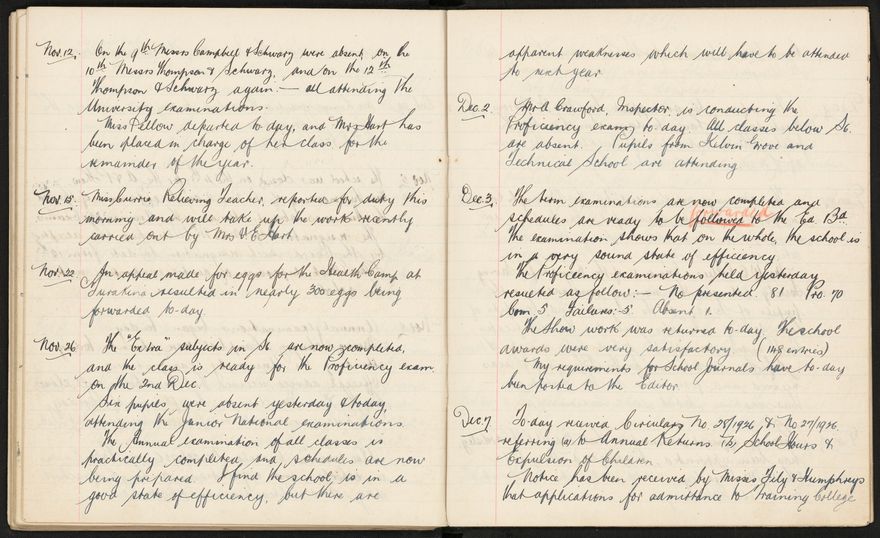 Nov. 12. On the 9th Messrs Campbell & Schwarz were absent, on the
10th Messrs Thompson & Schwarz, and on the 12th
Thompson & Schwarz again. — all attending the
University examinations.
Miss Pellow departed to-day, and Mrs Hart has
been placed in charge of her class for the
remainder of the year.
Nov. 15. Miss Currie, Relieving Teacher, reported for duty this
morning and will take up the work recently
carried out by Mrs V. E. Hart.
Nov. 22 An appeal made for eggs for the Health Camp at
Turakina resulted in nearly 300 eggs being
forwarded to-day.
Nov. 26 The "Extra" subjects in S6 are now completed,
and the class is ready for the Proficiency exam.
on the 2nd Dec.
Six pupils were absent yesterday & today,
attending the Junior National examinations.
The Annual examination of all classes is
practically completed and schedules are now
being prepared. I find the school is in a
good state of efficiency, but there are
apparent weaknesses which will have to be attended
to next year.
Dec. 2. Mr A Crawford, Inspector, is conducting the
Proficiency exam to-day. All classes below S6.
are absent. Pupils from Kelvin Grove and
Technical School are attending.
Dec. 3. The term examinations are now completed and
forwarded
schedules are ready to be followed to the Ed. Bd.
The examination shows that on the whole, the school is
in a very sound state of efficiency
The Proficiency examinations held yesterday
resulted as follow:— No presented 81 Pro. 70
Com 5 Failures:- 5 Absent 1.
The Show work was returned to-day. The school
awards were very satisfactory (148 entries)
My requirements for School Journals have to-day
been posted to the Editor.
Dec. 7 To-day received Circulars No 28/1926 & No 27/1926.
referring (a) to Annual Returns (b) School Hours &
Expulsion of Children.
Notice has been received by Misses Lily & Humphreys
that applications for admittance to Training College